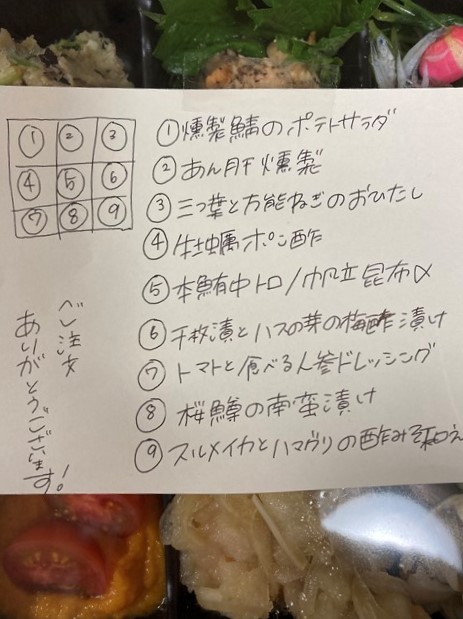 ① ② ③
④ ⑤ ⑥
⑦ ⑧ ⑨
①燻製鯖のポテトサラダ
②あん肝燻製
③三つ葉と万能ねぎのおひたし
④生牡蠣ポン酢
⑤本鮪中トロ/帆立昆布〆
⑥千枚漬とハスの芽の梅酢漬け
⑦トマトと食べる人参ドレッシング
⑧桜鱒の南蛮漬け
⑨スルメイカとハマグリの酢みそ和え
ご注文
ありがとうございます!